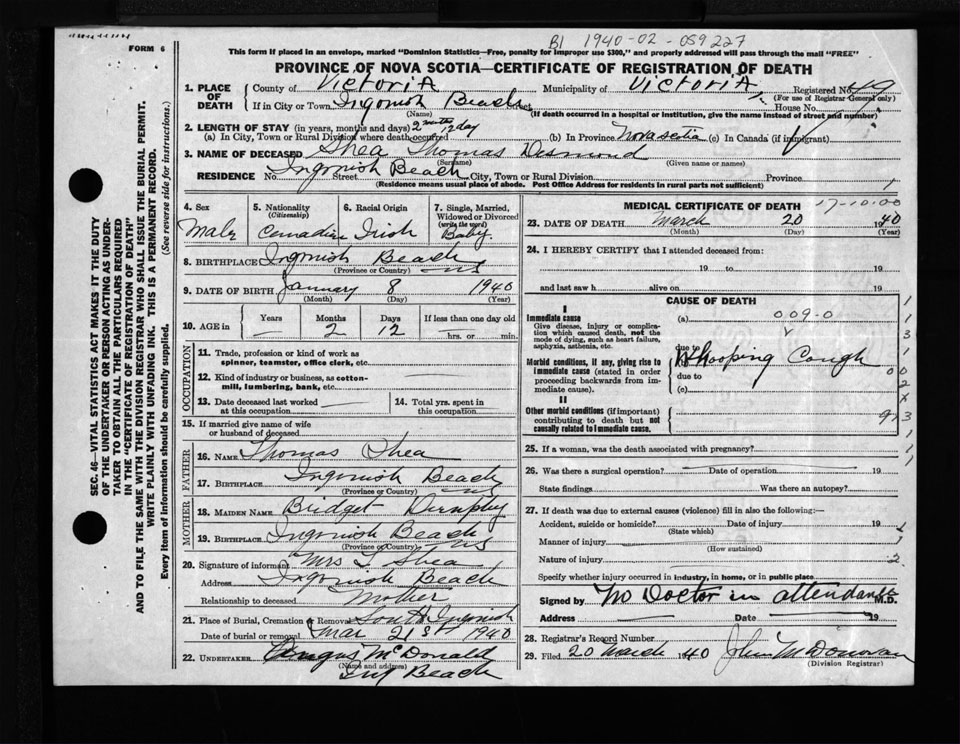 FORM 6
B1 1940-02-059227
This form if placed in an envelope, marked "Dominion Statistics—Free, penalty for improper use $300," and properly addressed will pass through the mail "FREE"
PROVINCE OF NOVA SCOTIA—CERTIFICATE OF REGISTRATION OF DEATH
SEC. 46—VITAL STATISTICS ACT MAKES IT THE DUTY
OF THE UNDERTAKER OR PERSON ACTING AS UNDER-
TAKER TO OBTAIN ALL THE PARTICULARS REQUIRED
IN THE "CERTIFICATE OF REGISTRATION OF DEATH"
AND TO FILE THE SAME WITH THE DIVISION REGISTRAR WHO SHALL ISSUE THE BURIAL PERMIT.
WRITE PLAINLY WITH UNFADING INK. THIS IS A PERMANENT RECORD.
Every item of information should be carefully supplied. (See reverse side for instructions.)
1. PLACE OF DEATH
County of Victoria Municipality of Victoria Registered No. 49
(For use of Registrar General only)
If in City or Town Ingonish Beach Street House No.
(Name) (If death occurred in a hospital or institution, give the name instead of street and number)
2. LENGTH OF STAY (in years, months and days) 2 months 12 day
(a) In City, Town or Rural Division where death occurred (b) In Province Nova Scotia (c) In Canada (if immigrant)
3. NAME OF DECEASED Shea Thomas Desmond
(Surname) (Given name or names)
RESIDENCE No. Ingonish Beach Street City, Town or Rural Division Province
(Residence means usual place of abode. Post Office Address for residents in rural parts not sufficient)
4. Sex
Male
5. Nationality
(Citizenship)
Canadian
6. Racial Origin
Irish
7. Single, Married, Widowed or Divorced
(write the word)
Baby
8. BIRTHPLACE Ingonish Beach NS
(Province or Country)
9. DATE OF BIRTH January 8 1940
(Month) (Day) (Year)
10. AGE in Years Months Days If less than one day old
2 12 hrs. or min.
OCCUPATION
11. Trade, profession or kind of work as
spinner, teamster, office clerk, etc.
12. Kind of industry or business, as cotton-
mill, lumbering, bank, etc.
13. Date deceased last worked
at this occupation
14. Total yrs. spent in
this occupation
15. If married give name of wife
or husband of deceased
FATHER
16. NAME Thomas Shea
17. BIRTHPLACE Ingonish Beach NS
(Province or Country)
MOTHER
18. MAIDEN NAME Bridget Dunphy
19. BIRTHPLACE Ingonish Beach NS
(Province or Country)
20. Signature of informant Mrs T Shea
Address Ingonish Beach
Relationship to deceased Mother
21. Place of Burial, Cremation or Removal South Ingonish
Date of burial or removal Mar 21st 1940
22. UNDERTAKER Angus McDonald
(Name and address)
Ing Beach
MEDICAL CERTIFICATE OF DEATH 17-10:00
23. DATE OF DEATH March 20 1940
(Month) (Day) (Year)
24. I HEREBY CERTIFY that I attended deceased from:
19 to 19
and last saw h alive on 19
CAUSE OF DEATH
I
Immediate cause
Give disease, injury or complica-
tion which caused death, not the
mode of dying, such as heart failure,
asphyxia, asthenia, etc.
(a) 009-0
due to
Whooping Cough
Morbid conditions, if any, giving rise to
immediate cause (stated in order
proceeding backwards from im-
mediate cause).
due to
(c)
II
Other morbid conditions (if important)
contributing to death but not
causally related to immediate cause.
25. If a woman, was the death associated with pregnancy?
26. Was there a surgical operation? Date of operation 19
State findings Was there an autopsy?
27. If death was due to external causes (violence) fill in also the following:—
Accident, suicide or homicide? Date of injury 19
(State which)
Manner of injury
(How sustained)
Nature of injury 2
Specify whether injury occurred in industry, in home, or in public place
Signed by No Doctor in attendance M.D.
Address Date 19
28. Registrar's Record Number
29. Filed 20 March 1940 John M Donovan
(Division Registrar)